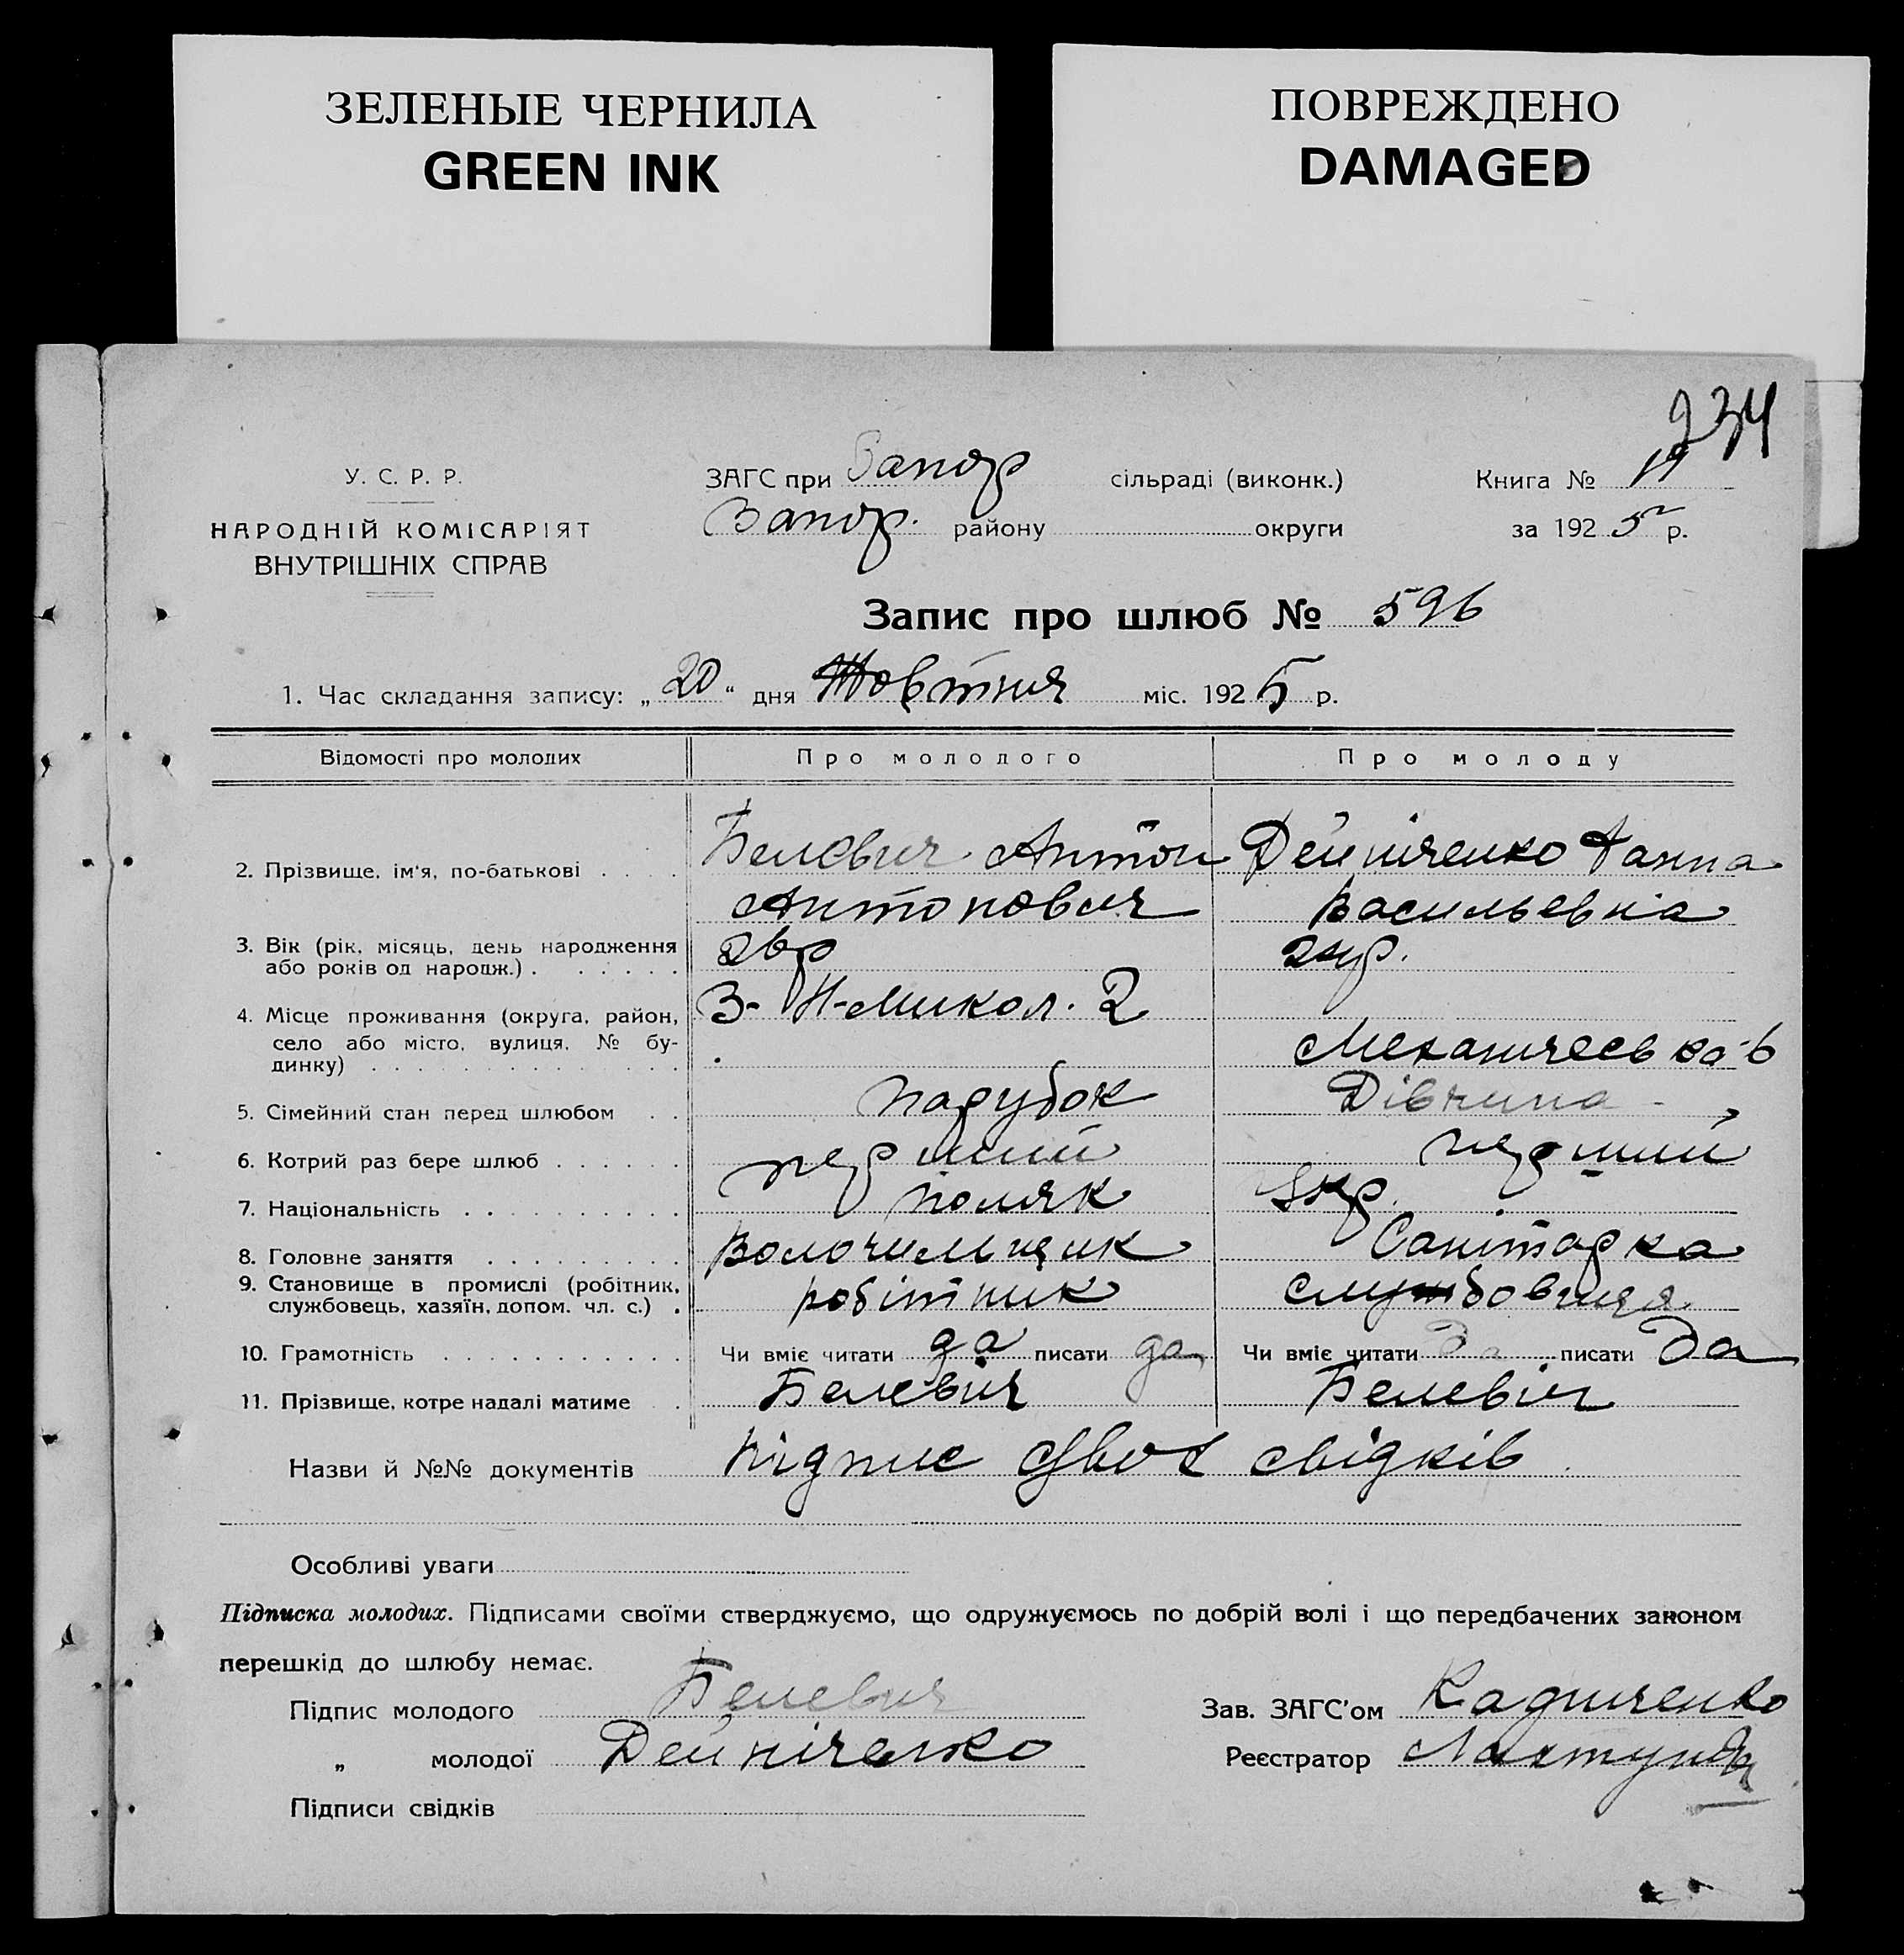 ЗЕЛЕНЫЕ ЧЕРНИЛА
GREEN INK
ПОВРЕЖДЕНО
DAMAGED
234
У. С. Р. Р.
НАРОДНІЙ КОМІСАРІЯТ
ВНУТРІШНІХ СПРАВ
ЗАГС при Запор сільраді (виконк.)
Запор. району округи
Книга №
за 1925 р.
Запис про шлюб № 596
1. Час складання запису: „20“ дня Жовтня міс. 1925 р.
Відомості про молодих Про молодого Про молоду
2. Прізвище, ім'я, по-батькові Белевич Антон Дейніченко Ганна
Антонович Васильевна
3. Вік (рік, місяць, день народження
або років од народж.) 26р
4. Місце проживання (округа, район,
село або місто, вулиця, № будинку)
З- Н-Микол. 2
5. Сімейний стан перед шлюбом парубок Дівчина
6. Котрий раз бере шлюб перший перший
7. Національність поляк Укр.
8. Головне заняття Волочильщик Санітарка
9. Становище в промислі (робітник,
службовець, хазяїн, допом. чл. с.) робітник службовиця
10. Грамотність Чи вміє читати да писати да Чи вміє читати да писати да
11. Прізвище, котре надалі матиме Белевич Белевіч
Назви й №№ документів підпис двох свідків
Особливі уваги
Підписка молодих. Підписами своїми стверджуємо, що одружуємось по добрій волі і що передбачених законом
перешкід до шлюбу немає.
Підпис молодого Белевич
„ молодої Дейніченко
Підписи свідків
Зав. ЗАГС'ом
Реєстратор